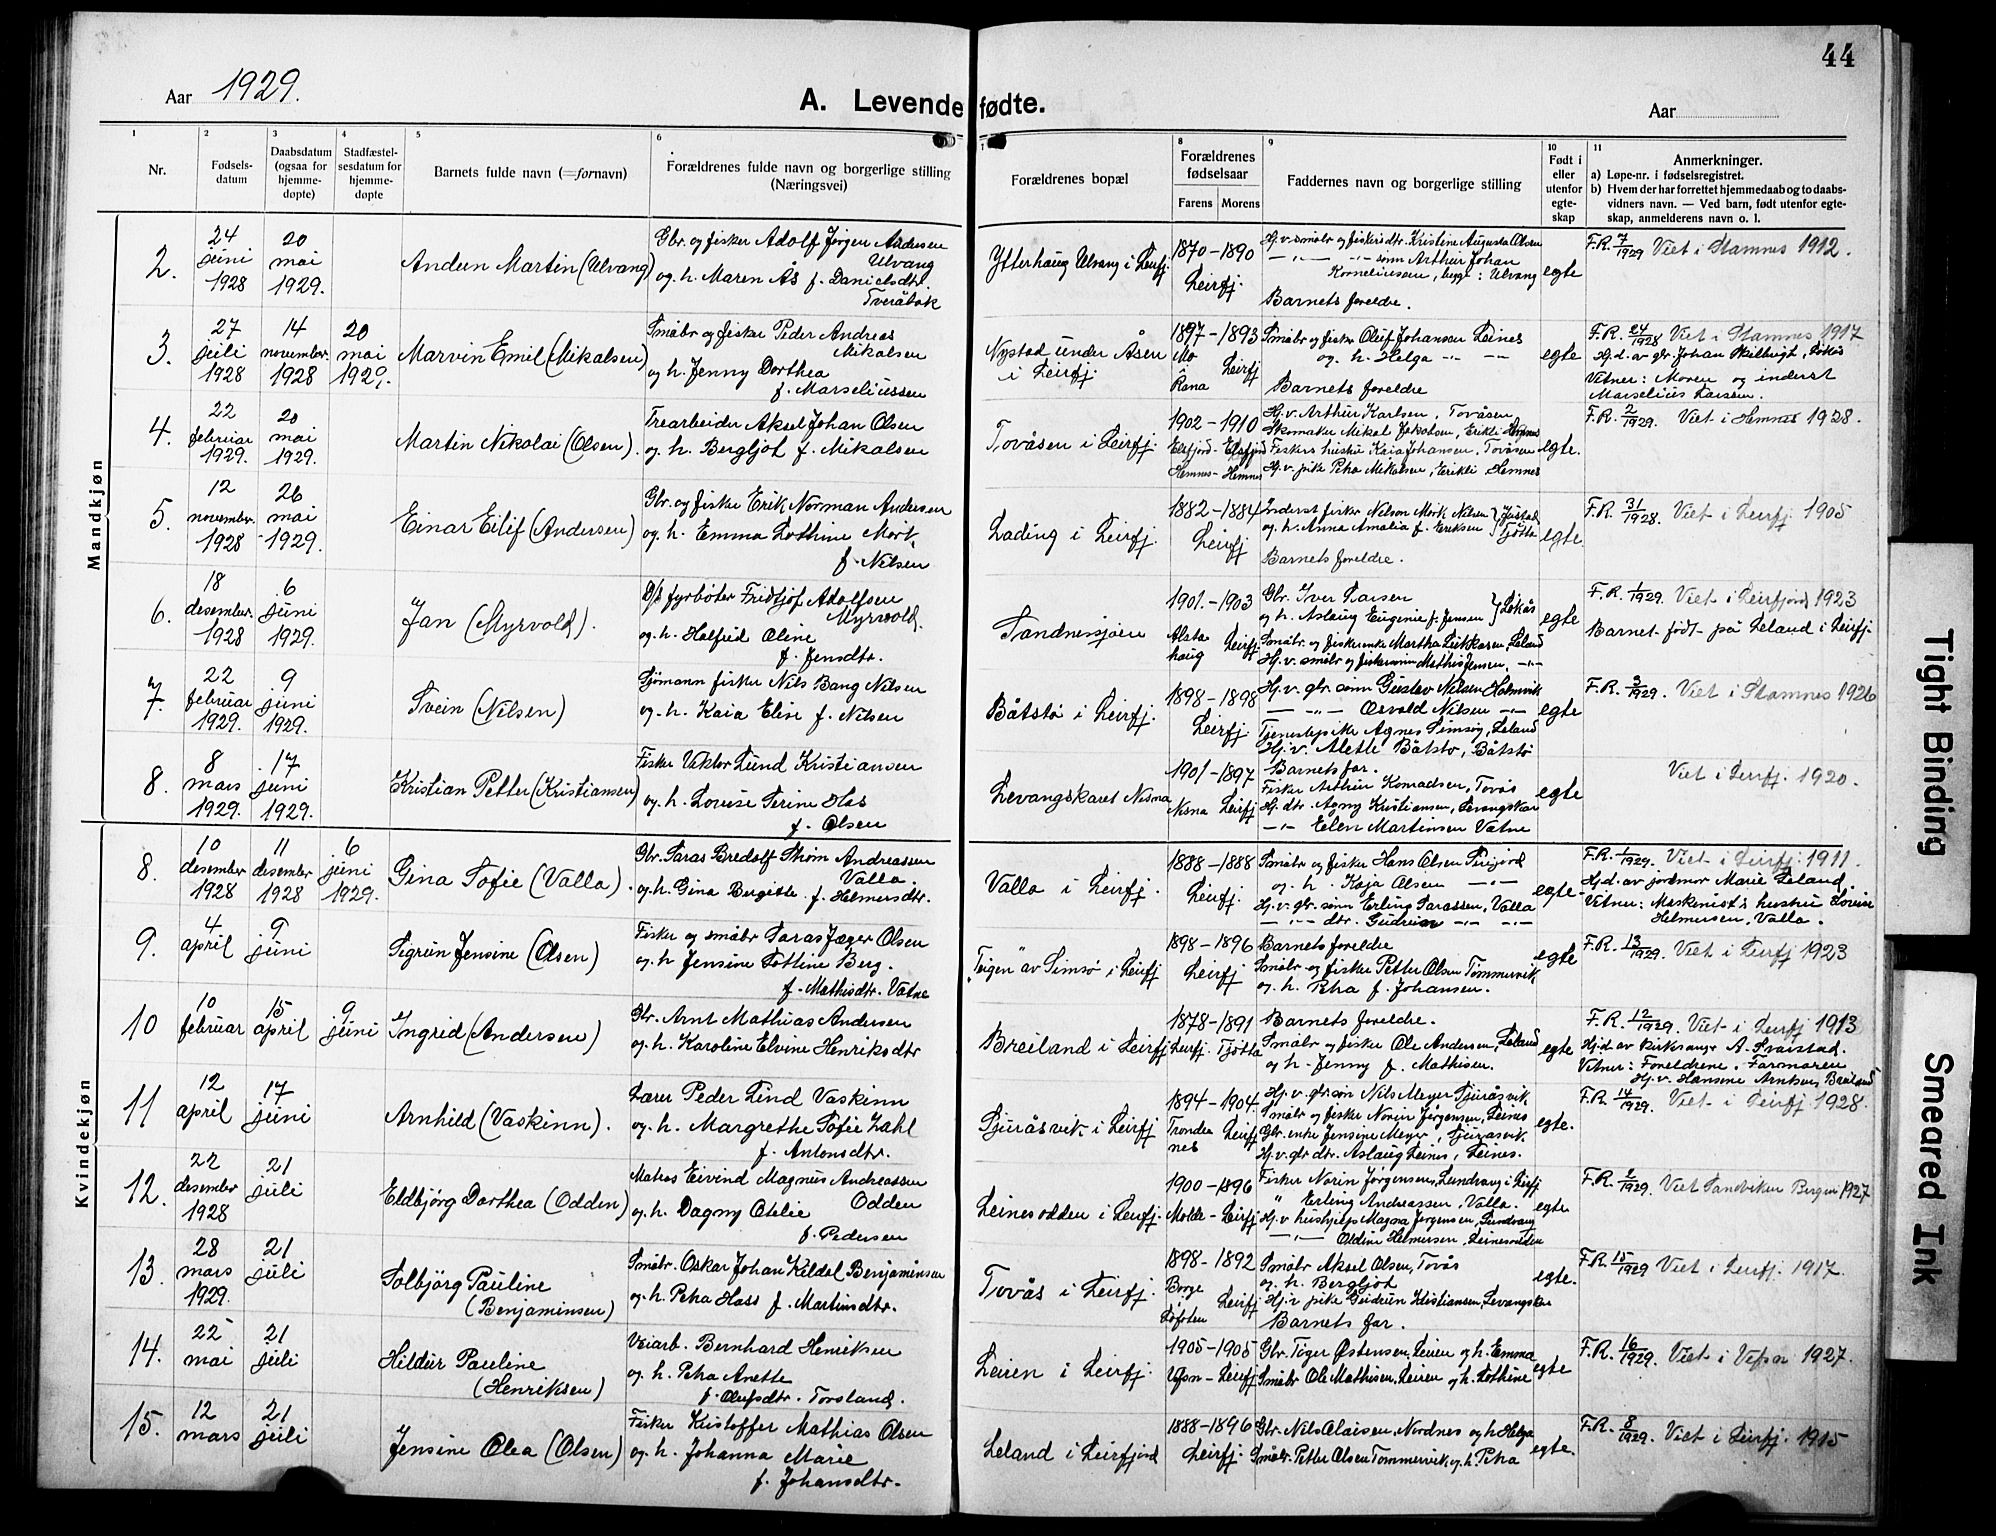 44
Aar 1929.
A. Levendefødte.
Aar
1
2
3
4
5
6
7
8
9
10
11
Nr.
Fødsels-
datum
Daabsdatum
(ogsaa for
hjemme-
døpte)
Stadfæstel-
sesdatum for
hjemme-
døpte
Barnets fulde navn (=fornavn)
Forældrenes fulde navn og borgerlige stilling
(Næringsvei)
Forældrenes bopæl
Forældrenes
fødselsaar
Farens
Morens
Faddernes navn og borgerlige stilling
Født i
eller
utenfor
egte-
skap
Anmerkninger.
a) Løpe-nr. i fødselsregistret.
b) Hvem der har forrettet hjemmedaab og to daabs-
vidners navn. — Ved barn, født utenfor egte-
skap, anmelderens navn o. l.
Mandkjøn
2.
24
juni
1928
20
mai
1929.
Martin (Ulvang)
Gbr. og fisker Adolf Jørgen Andersen
Ulvang
og h. Maren Ås f. Danielsdtr.
Tveråbak
Ytterhaug Ulvang i Leirfj.
1870 - 1890
Leirfj.
Hj.v. småbr og fiskerdtr. Kristine Augusta Olsen
sønn Arthur Johan
Korneliussen, begge: Ulvang
Barnets foreldre.
egte
F.R. 7/1929 Viet i Stamnes 1912.
3.
27
juli
1928
14
november
1928
20
mai
1929.
Marvin Emil (Mikalsen)
Småbr og fisker Peder Andreas
Mikalsen
og h. Jenny Dorthea
f. Marseliussen
Nystad under Åsen
i Leirfj.
1897 - 1893
Mo
Rana
Leirfj
Småbr og fisker Oluf Johansen Leines
og h. Helga
Barnets foreldre
egte
F.R. 24/1928 Viet i Stamnes 1917
Hj.d. av gbr Johan
Vitner: Moren og inderst
Marselius Larsen.
4.
22
februar
1929.
20
mai
1929.
Martin Nikolai (Olsen).
Trearbeider Aksel Johan Olsen
og h. Bergljot f. Mikalsen
Tovåsen i Leirfj.
1902 - 1910
Elsfjord - Elsfjord
Hemnes - Hemnes
Hj.v. Arthur Karlsen, Tovåsen
Skomaker Mikal Jakobsen,
Fiskers hustru Kaia Johansen, Tovåsen
Hj.v. pike Petra Mikalsen, Hemnes
egte.
F.R. 2/1929. Viet i Hemnes 1928.
5.
12
november
1928
26
mai
1929.
Einar Eilif (Andersen)
Gbr. og fisker Erik Norman Andersen
og h. Emma Lothine Mork,
f. Nilsen
Lading i Leirfj.
1882 - 1884
Leirfj
Inderst fisker Nelson Mork Nilsen
og h. Anna Amalia f. Eriksen Tjøtta
Barnets foreldre.
egte
F.R. 31/1928. Viet i Leirfj. 1905
6.
18
desember
1928
6
juni
1929.
Jan (Myrvold).
D/S fyrbøter Fridtjof Adolfsen
Myrvold,
og h. Halfrid Oline
f. Jensdtr.
Sandnessjøen
1901. - 1903
Alsta
haug
Leirfj
Gbr. Iver Larsen
og h. Aslaug Eugenie f. Jensen } Løkås
Småbr og fiskerenke Martha Leland
Hj.v. småbr og fiskersønn Mathis Jensen,
egte
F.R. 1/1929. Viet i Leirfjord 1923
Barnet født på Leland i Leirfj.
7.
22
februar
1929.
9
juni
1929.
Svein (Nilsen)
Sjømann fisker Nils Bang Nilsen
og h. Kaia Elise f. Nilsen
Båtstø i Leirfj.
1898 - 1898
Leirfj.
Hj.v. gbr. sønn Gustav Nilsen Holmvik
Osvald Nilsen
Tjenestepike Agnes Simsøy, Leland
Hj.v. Alette Båtstø, Båtstø
egte
F.R. 3/1929. Viet i Stamnes 1926
8.
8
mars
1929.
17
juni
1929.
Kristian Petter (Kristiansen)
Fisker Viktor Lund Kristiansen
og h. Lovise Serine Has
f. Olsen
Levangskaret Nesna
1901 - 1897
Nesna Leirfj.
Barnets far.
Fisker Arthur Konradsen, Tovås
Hj. dtr. Agny Kristiansen, Levangskar
Elen Martinsen Vatne
egte
Viet i Leirfj. 1920.
Kvindekjøn
8.
10
desember
1928
11
desember
1928
6
juni
1929.
Gina Sofie (Valla).
Gbr. Saras Bredolf Strøm Andreassen
Valla.
og h. Gina Bergitte f. Helmersdtr.
Valla i Leirfj.
1888 - 1888
Leirfj.
Småbr og fisker Hans Olsen
og h. Kaja Olsen
Hj.v. gbr. sønn Erling Sarassen, Valla
dtr. Gudrun
egte
F.R. 1/1929. Viet i Leirfj. 1911.
Hj.d. av jordmor Marie Leland.
Vitner: Maskenist's hustru Lovise
Helmersen, Valla.
9.
4
april
9
juni
Sigrun Jensine (Olsen)
Fisker og småbr Saras Jæger Olsen
og h Jensine Lottine Berg.
f. Mathisdtr. Vatne
"Teigen" av Simsø i Leirfj
1898 - 1896
Leirfj
Barnets foreldre
Småbr og fisker Petter Olsen Tømmervik
og h. Petra f. Johansen.
egte
F.R. 13/1929. Viet i Leirfj 1923
10
10
februar
15
april
9
juni
Ingrid (Andersen)
Gbr. Arnt Mathias Andersen
og h. Karoline Elvine Henriksdtr
Breiland i Leirfj
1878 - 1891
Leirfj. Tjøtta
Barnets foreldre.
Småbr og fisker Ole Andersen, Leland
og h. Jenny f. Mathisen.
egte
F.R. 12/1929. Viet i Leirfj 1913
Hj.d. av kirkesanger A. Svarstad.
Vitner: Foreldrene. Farmoren
Hj.v. Hansine Arntsen, Breiland
11
12
april
17
juni
Arnhild (Vaskinn).
Lærer Peder Lind Vaskinn
og h. Margrethe Sofie Zahl
f. Antonsdtr.
Sjuråsvik i Leirfj
1894 - 1904
Tronde
nes
Leirfj
Hj.v. gbr.sønn Nils Meyer Sjuråsvik
Småbr og fisker Norin Jørgensen, Leines
Gbr. enke Jensine Meyer, Sjuråsvik.
Hj.v. gbr dtr. Aslaug Leines, Leines.
egte.
F.R. 14/1929. Viet i Leirfj 1928.
12.
22
desember
1928
21
juli
Eldbjörg Dorthea (Odden)
Matros Eivind Magnus Andreassen
Odden
og h. Dagny Otelie
f. Pedersen
Leinesodden i Leirfj.
1900 - 1896
Molde - Leirfj
Fisker Norin Jørgensen, Sundvang i Leirfj
" Erling Andreassen, Valla.
Hj.v hushjelp Magna Jørgensen, Sundvang
Oldine Helmersen, Leinesodden
egte.
F.R. 2/1929. Viet Sandviken Bergen 1927
13.
28
mars
1929.
21
juli
Solbjörg Pauline
(Benjaminsen)
Småbr. Oskar Johan Kildal Benjaminsen
og h. Petra Hass f. Martinsdtr.
Tovås i Leirfj.
1898 - 1892
Borge
Lofoten
Leirfj
Småbr Aksel Olsen, Tovås
og h. Bergljod
Hj.v pike Gudrun Kristiansen, Levangskar
Barnets far.
egte.
F.R. 15/1929 Viet i Leirfj. 1917.
14.
22
mai
21
juli
Hildur Pauline
(Henriksen)
Veiarb. Bernhard Henriksen
og h. Petra Anette
f. Olufsdtr. Forsland.
Leien i Leirfj.
1905 - 1905
Vefsn - Leirfj
Gbr. Tiger Østensen, Leien og h. Emma
Småbr Ole Mathisen, Leien og h. Lothine
egte
F.R. 16/1929. Viet i Vefsn 1927.
15.
12
mars
21
juli
Jensine Olea (Olsen)
Fisker Kristoffer Mathias Olsen
og h. Johanna Marie
f. Johansdtr.
Leland i Leirfjord
1888 - 1896
Leirfj.
Gbr. Nils Olaisen, Nordnes og h Helga
Småbr. Petter Olsen Tømmervik og h. Petra
egte.
F.R. 8/1929. Viet i Leirfj. 1915
Tight Binding
Smeared Ink